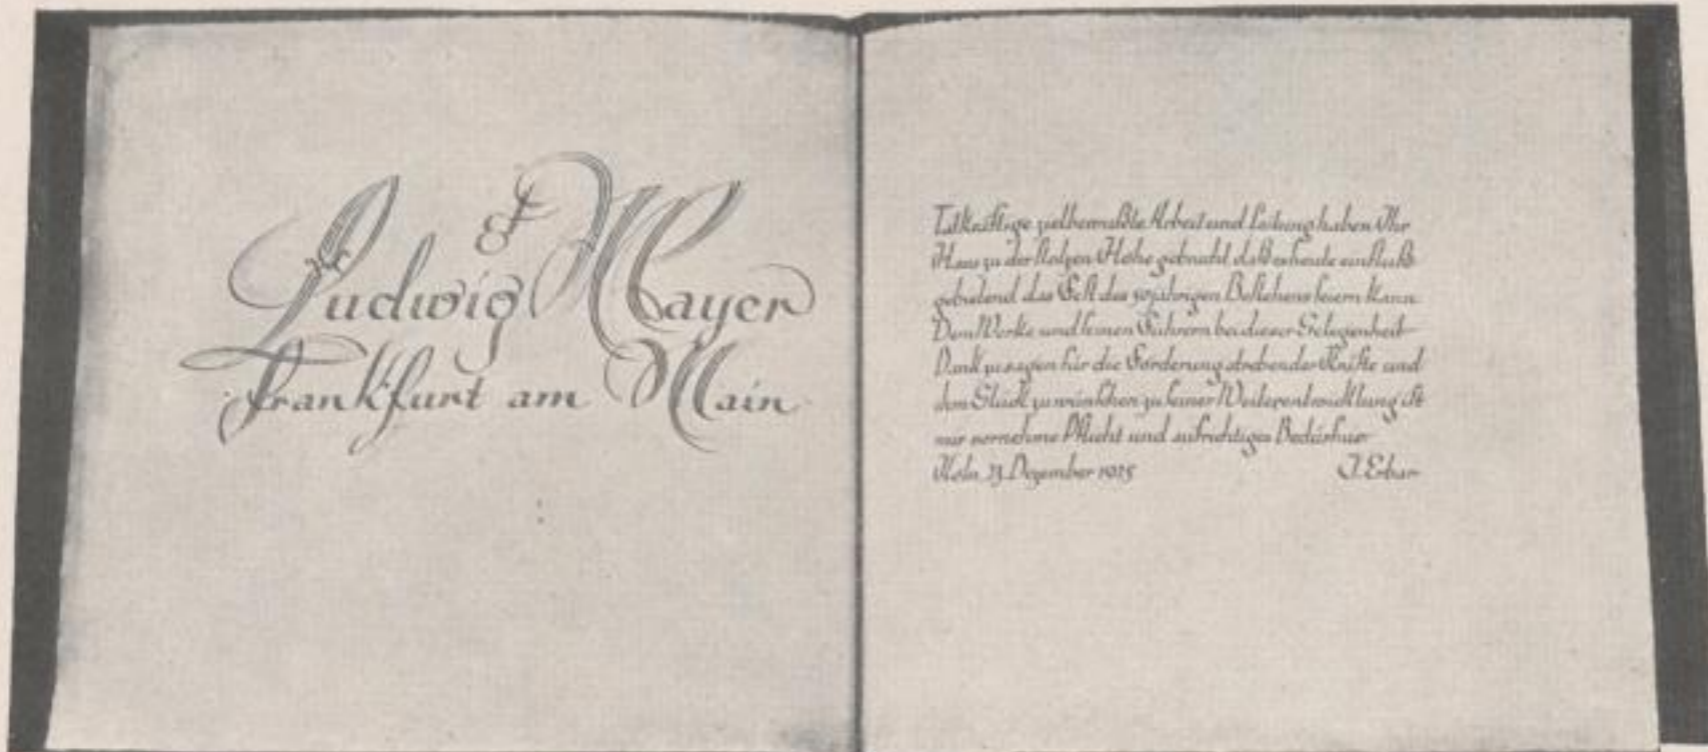 Ludwig & Mayer
Frankfurt am Main
Tatkräftige zielbewußte Arbeit und Leitung haben Ihr
Haus zu der stolzen Höhe gebracht daß es heute einfluß
gebietend das Fest des 50jährigen Bestehens feiern kann
Dem Werke und seinen Führern bei dieser Gelegenheit
Dank zu sagen für die Förderung strebender Kräfte und
dem Glück zu wünschen zu seiner Weiterentwicklung ist
mir vornehme Pflicht und aufrichtiges Bedürfnis
Köln, 13. Dezember 1925 J. Erbar